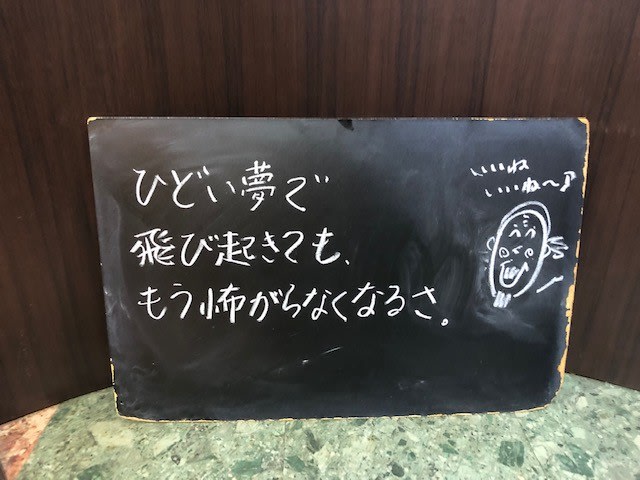 ひどい夢で
飛び起きても、
もう怖がらなくなるさ。
いいね
いいね〜♪